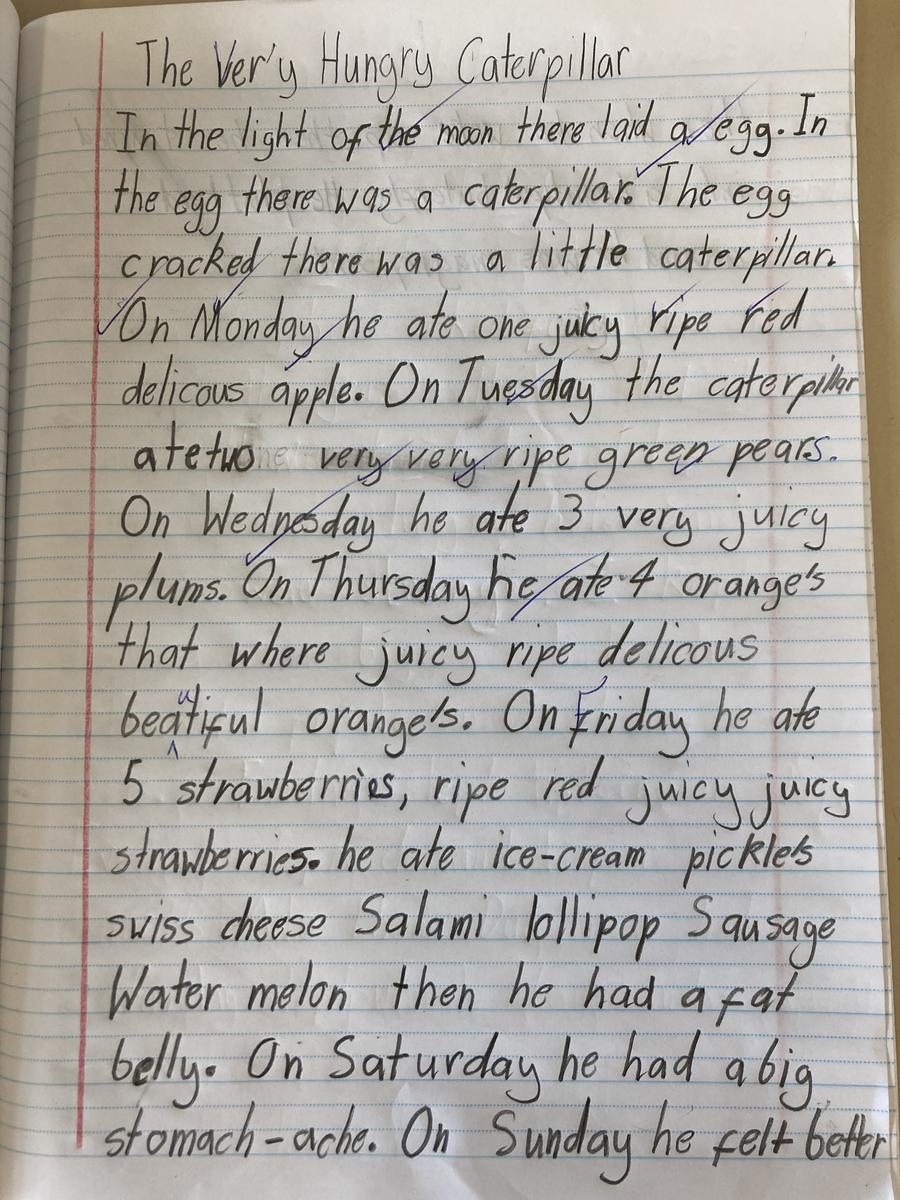 The Ver'y Hungry Caterpillar
In the light of the moon there laid a egg. In
the egg there was a caterpillar. The egg
cracked there was a little caterpillar.
On Monday he ate one juicy ripe red
delicous apple. On Tuesday the caterpillar
ate two very very ripe green pears.
On Wednesday he ate 3 very juicy
plums. On Thursday he ate 4 orange's
that where juicy ripe delicous
beautiful orange's. On Friday he ate
5 strawberries, ripe red juicy juicy
strawberries. he ate ice-cream pickle's
swiss cheese Salami lollipop Sausage
Water melon then he had a fat
belly. On Saturday he had a big
stomach-ache. On Sunday he felt better